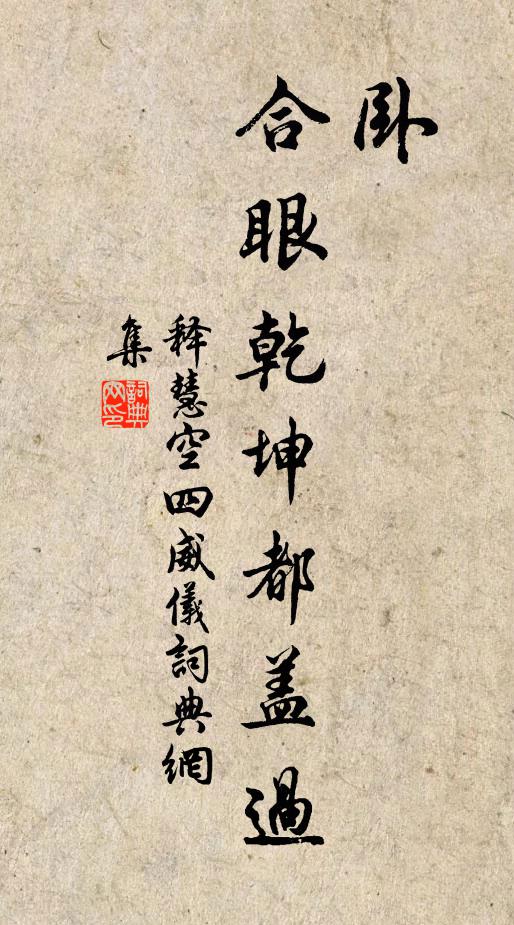 卧
合眼乾坤都盖過
释慧空四威儀詞典網
集
詞典
网印